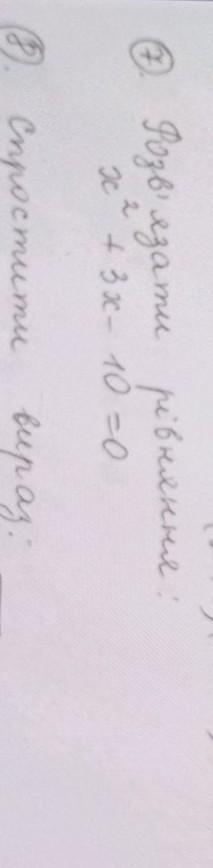 7. Розв'язати рівняння:
x² + 3x - 10 = 0
8. Спростити вираз: